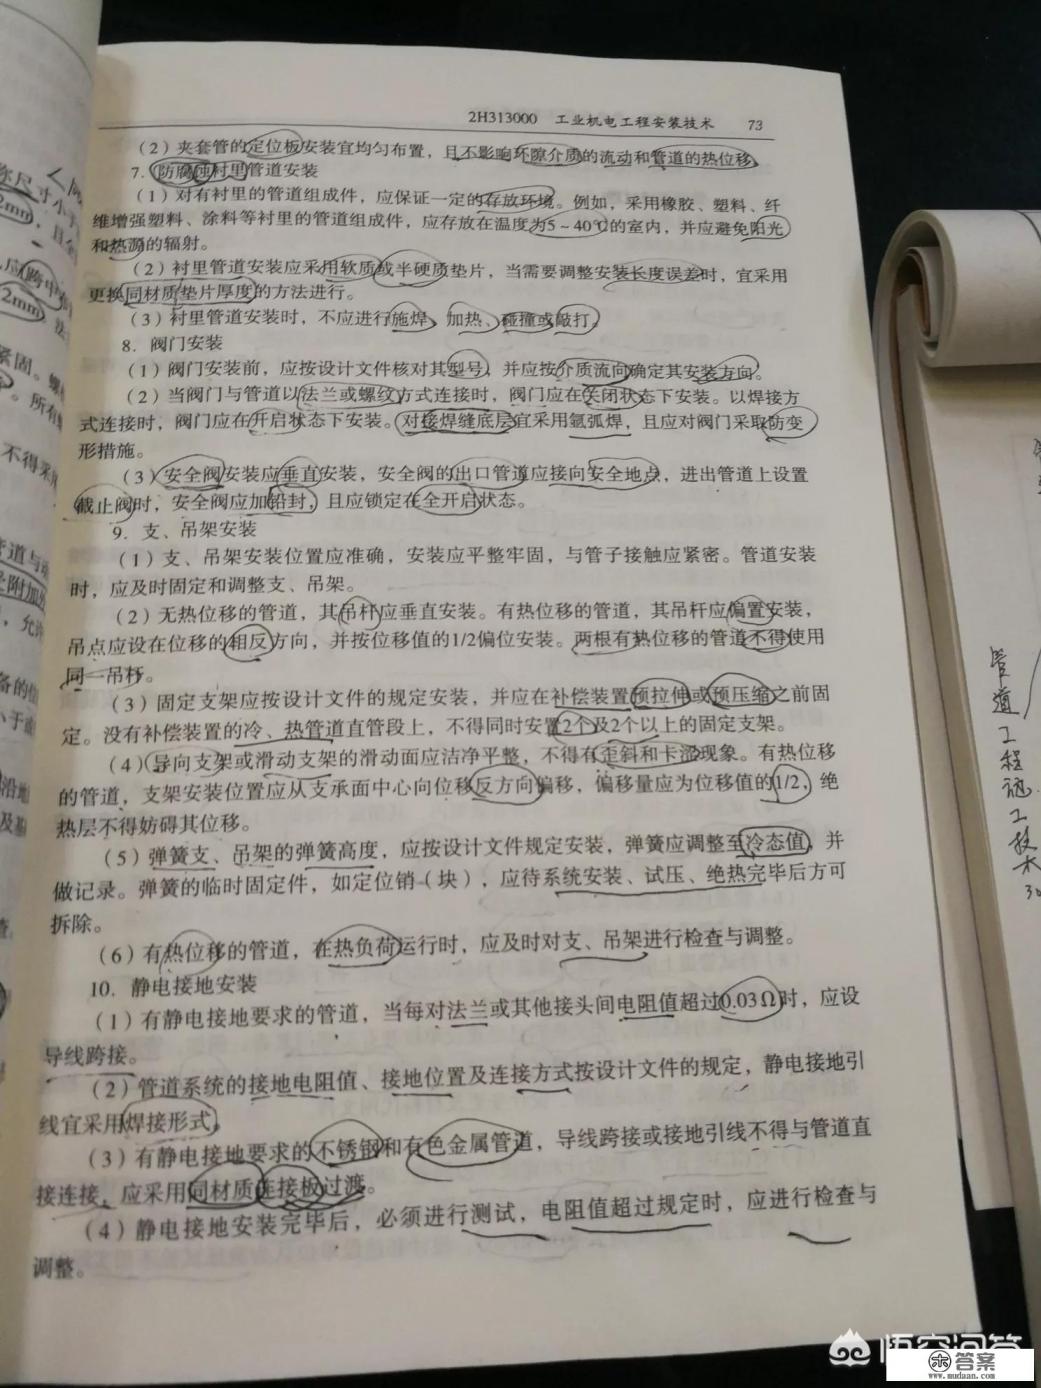 2H313000 工业机电工程安装技术 73
(2)夹套管的定位板安装宜均匀布置，且不影响环隙介质的流动和管道的热位移。
7. 防腐蚀衬里管道安装
(1)对有衬里的管道组成件，应保证一定的存放环境。例如，采用橡胶、塑料、纤
维增强塑料、涂料等衬里的管道组成件，应存放在温度为5～40℃的室内，并应避免阳光
和热源的辐射。
(2)衬里管道安装应采用软质或半硬质垫片，当需要调整安装长度误差时，宜采用
更换同材质垫片厚度的方法进行。
(3)衬里管道安装时，不应进行施焊、加热、碰撞或敲打。
8. 阀门安装
(1)阀门安装前，应按设计文件核对其型号，并应按介质流向确定其安装方向。
(2)当阀门与管道以法兰或螺纹方式连接时，阀门应在关闭状态下安装。以焊接方
式连接时，阀门应在开启状态下安装。对接焊缝底层宜采用氩弧焊，且应对阀门采取防变
形措施。
(3)安全阀安装应垂直安装，安全阀的出口管道应接向安全地点，进出管道上设置
截止阀时，安全阀应加铅封，且应锁定在全开启状态。
9. 支、吊架安装
(1)支、吊架安装位置应准确，安装应平整牢固，与管子接触应紧密。管道安装
时，应及时固定和调整支、吊架。
(2)无热位移的管道，其吊杆应垂直安装。有热位移的管道，其吊杆应偏置安装，
吊点应设在位移的相反方向，并按位移值的1/2偏位安装。两根有热位移的管道不得使用
同一吊杆。
(3)固定支架应按设计文件的规定安装，并应在补偿装置预拉伸或预压缩之前固
定。没有补偿装置的冷、热管道直管段上，不得同时安置2个及2个以上的固定支架。
(4)导向支架或滑动支架的滑动面应洁净平整，不得有歪斜和卡涩现象。有热位移
的管道，支架安装位置应从支承面中心向位移反方向偏移，偏移量应为位移值的1/2，绝
热层不得妨碍其位移。
(5)弹簧支、吊架的弹簧高度，应按设计文件规定安装，弹簧应调整至冷态值，并
做记录。弹簧的临时固定件，如定位销(块)，应待系统安装、试压、绝热完毕后方可
拆除。
(6)有热位移的管道，在热负荷运行时，应及时对支、吊架进行检查与调整。
10. 静电接地安装
(1)有静电接地要求的管道，当每对法兰或其他接头间电阻值超过0.03Ω时，应设
导线跨接。
(2)管道系统的接地电阻值、接地位置及连接方式按设计文件的规定，静电接地引
线宜采用焊接形式。
(3)有静电接地要求的不锈钢和有色金属管道，导线跨接或接地引线不得与管道直
接连接，应采用同材质连接板过渡。
(4)静电接地安装完毕后，必须进行测试，电阻值超过规定时，应进行检查与
调整。
管道工程施工技术
悟空问答
答案
www.mudaan.com